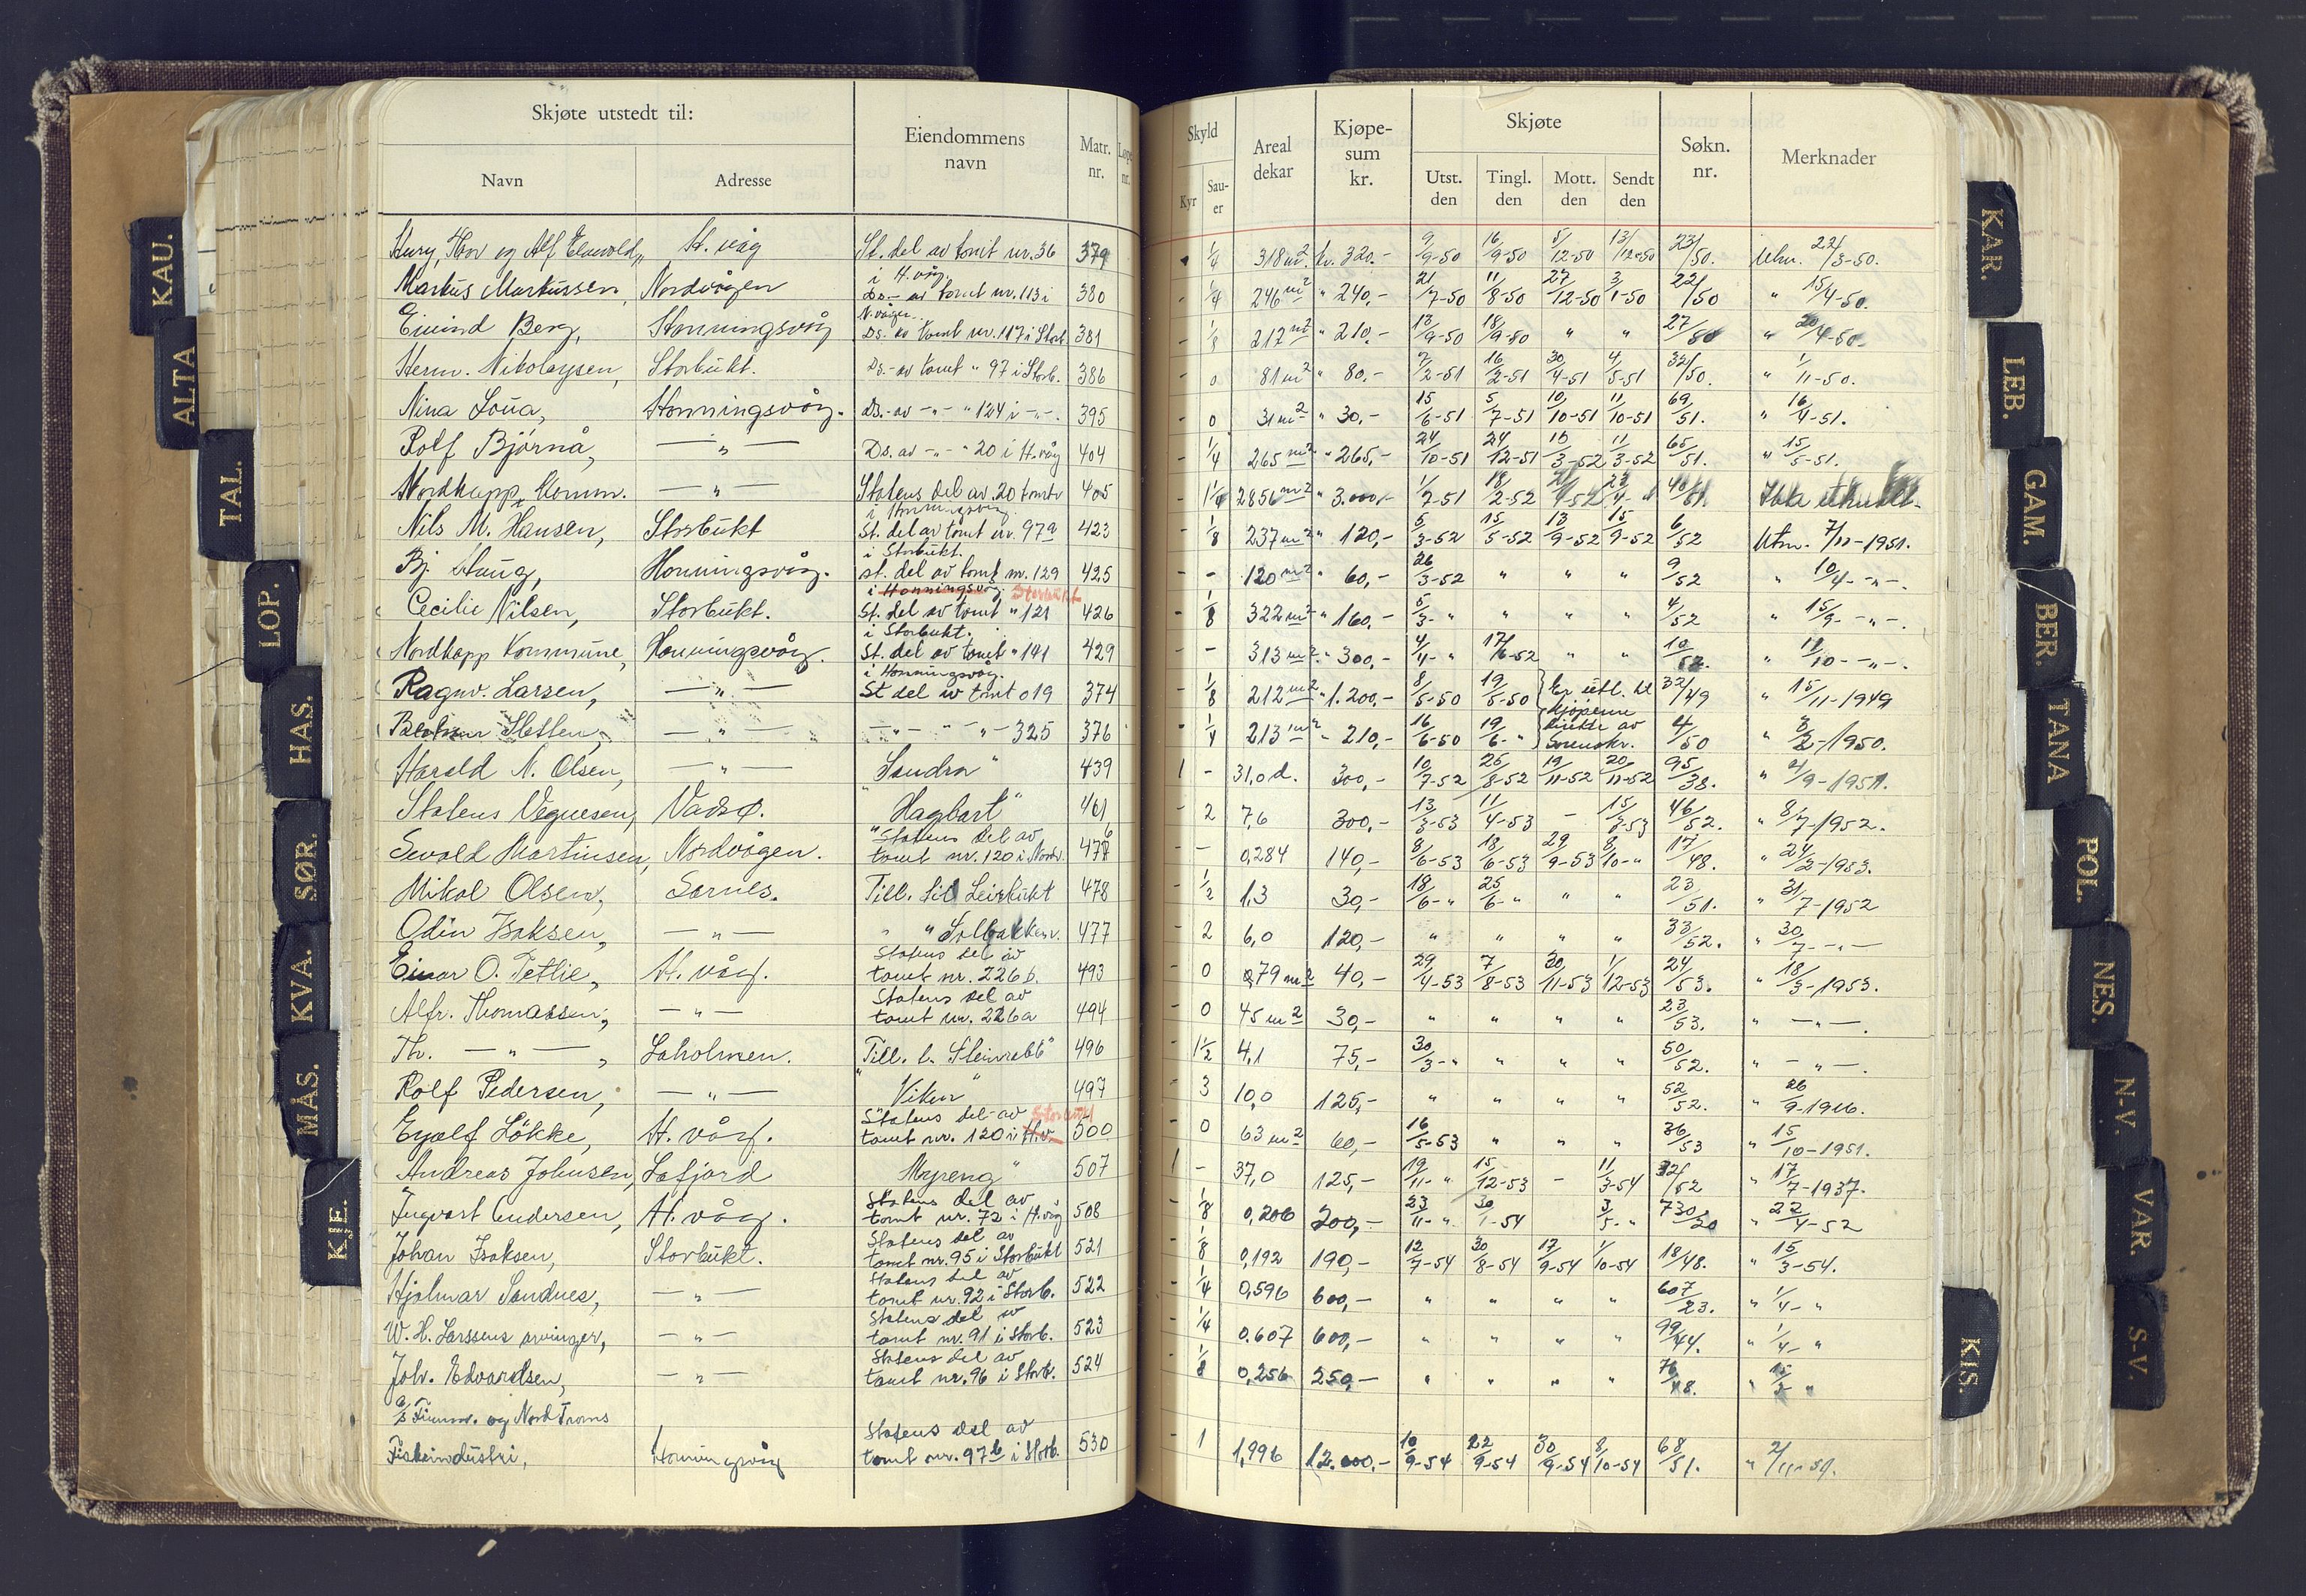 Skjøte utstedt til:
Navn
Adresse
Eiendommens
navn
Matr.
nr.
Løpe
nr.
Skyld
Kyr
Sau-
er
Areal
dekar
Kjøpe-
sum
kr.
Skjøte
Utst.
den
Tingl.
den
Mott.
den
Sendt
den
Søkn.
nr.
Merknader
og Alf H. våg St. del av tomt nr. 36 379 1/4 318 m2 kr. 320.- 9/9-50 16/9-50 5/12-50 13/12-50 23/50. Utm. 22/3-50.
i H. våg.
Markus Markussen, Nordvågen Ds.- av tomt nr. 113 i 380 - 1/4 246 m2 " 240,- 21/7-50 11/8-50 27/12-50 3/1-50 22/50 " 15/4-50.
N. vågen.
Eivind Berg, Honningsvåg Ds. av tomt nr. 117 i Storb. 381 - 1/8 212 m2 " 210,- 13/9-50 18/9-50 " " 27/50 " 20/4-50.
Herm. Nikolaysen, Storbukt. Ds.- av tomt " 97 i Storb. 386 0 81 m2 " 80,- 7/2-51 16/2-51 30/4-51 4/5-51 32/50. " 1/11-50.
Nina Loua, Honningsvåg. Ds.- av -"- " 124 i -"-. 395 - 0 31 m2 " 30,- 15/6-51 5/7-51 10/10-51 11/10-51 69/51. " 16/4-51.
Rolf Bjørnå, —"— Ds. av -"- " 20 i H. våg 404 - 1/4 265 m2 " 265,- 24/10-51 24/12-51 10/3-52 11/3-52 65/51. " 15/5-51.
Nordkapp Komm. —"— Statens del av 20 tomter 405 - 1 1/4 2856 m2 " 3.000,- 1/7-51 18/2-52 40/51 Ikke utmålt.
i Honningsvåg.
Nils M. Hansen, Storbukt St. del av tomt nr. 97a 423 - 1/8 237 m2 " 120,- 5/3-52 15/5-52 13/9-52 15/9-52 6/52 Utm. 7/11-1951.
i Storbukt.
Bj. Haug, Honningsvåg. st. del av tomt nr. 129 425 - - 120 m2 " 60,- 26/3-52 " " " 9/52 " 10/4- -"-.
i Honningsvåg Storbukt
Cecilie Nilsen, Storbukt. St. del av tomt " 121 426 1/8 322 m2 " 160,- 5/3- " " " " 4/52 " 15/9- -"-.
i Storbukt.
Nordkapp Kommune, Honningsvåg. St. del av tomt " 141 429 - - 313 m2 " 300,- 4/4- " 17/6-52 " " 10/52. " 11/10- -"-.
i Honningsvåg.
Ragnv. Larsen, —"— St del av tomt 019 374 - 1/8 212 m2 " 1.200,- 8/5-50 19/5-50 Er utl. til 32/49 " 15/11-1949
kjøperne
Sletten, —"— —"— " —"— 325 376 - 1/4 213 m2 " 210,- 16/6-50 19/6- " direkte av 4/50 " 3/2-1950.
Sorenskr.
Harald N. Olsen, —"— "Sandra" 439 1 - 31,0 d. 300,- 10/7-52 26/8-52 19/11-52 20/11-52 95/38. " 4/9-1951.
Statens Vegvesen, Vadsø. "Hagbart" 461 - 2 7,6 300,- 13/3-53 11/4-53 - 15/7-53 46/52. " 8/7-1952.
Statens del av
Sevald Martinsen, Nordvågen. tomt nr. 120 i Nordv. 476 - 0,284 140,- 8/6-53 18/6-53 29/9-53 8/10-" 17/48. " 24/2-1953.
Mikal Olsen, Sarnes. Till. til Leirbukt 478 - 1/2 1,3 30,- 18/6-" 25/6-" " " 23/51. " 31/7-1952
Odin Isaksen, —"— " " Solbakken. 477 - 2 6,0 120,- " " " " 33/52. " 30/7- —"—
Statens del av
Einar O. Tetlie, H. våg. tomt nr. 226 b. 493 - 0 79 m2 40,- 29/4-53 7/8-53 30/11-53 1/12-53 24/53. " 18/3-1953.
Statens del av
Alfr. Thomassen, —"— tomt nr. 226 a 494 - 0 45 m2 30,- " " " " 23/53. " —"—.
Th. —"—, Laholmen. Till. t. "Steinrabb" 496 - 1 1/2 4,1 75,- 30/3-" " " " 50/52. " —"—.
Rolf Pedersen, —"— "Viken" 497 - 3 10,0 125,- " " " " 52/52. " 26/9-1926.
Statens del av
Eyolf Løkke, H. våg. tomt nr. 120 i H.v. 500 - 0 63 m2 60,- 16/5-53 " " " 36/53 " 15/10-1951.
Andreas Johnsen, Lafjord "Myreng" 507 1 - 37,0 125,- 19/11-" 15/12-53 - 11/3-54 32/52 " 17/7-1937.
Statens del av
Ingvart Andersen, H. våg. tomt nr. 72 i H. våg 508 1/8 0,206 200,- 23/11-" 30/1-54 3/5-" 730/20 " 22/4-52
Statens del av
Johan Isaksen, Storbukt. tomt nr. 95 i Storbukt 521 1/8 0,192 190,- 12/7-54 30/8-54 17/9-54 1/10-54 18/48. " 15/3-54.
Statens del av
Hjalmar Sandnes, —"— tomt nr. 92 i Storb. 522 1/4 0,596 600,- " " " " 607/23. " 1/4- "
Statens del av
W. H. Larssens arvinger, —"— tomt nr. 91 i Storb. 523 1/4 0.607 600,- " " " " 99/44. " 1/4- "
Statens del av
Joh. Edvardsen, —"— tomt nr. 96 i Storb. 524 1/8 0,256 250,- " " " " 76/48. "
A/S Finnm. og Nord Troms
Statens del av
Fiskeindustri, Honningsvåg tomt nr. 97b i Storb. 530 1 1,996 12.000.- 10/9-54 22/9-54 30/9-54 8/10-54 68/51. " 2/11-54.
KAU.
ALTA
TAL.
LOP.
HAS.
SØR.
KVA.
MÅS.
KJE.
KAR.
LEB.
GAM.
BER.
TANA
POL.
NES.
N-V.
VAR.
S-V.
KIS.